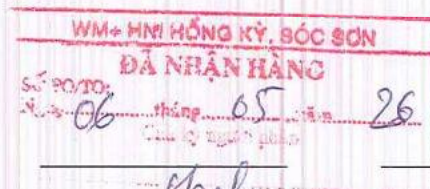 WM+ HNI HỒNG KỲ, SÓC SƠN
ĐÃ NHẬN HÀNG
Số PO/TO:
Ngày 06 tháng 05 năm 26
Chữ ký người nhận